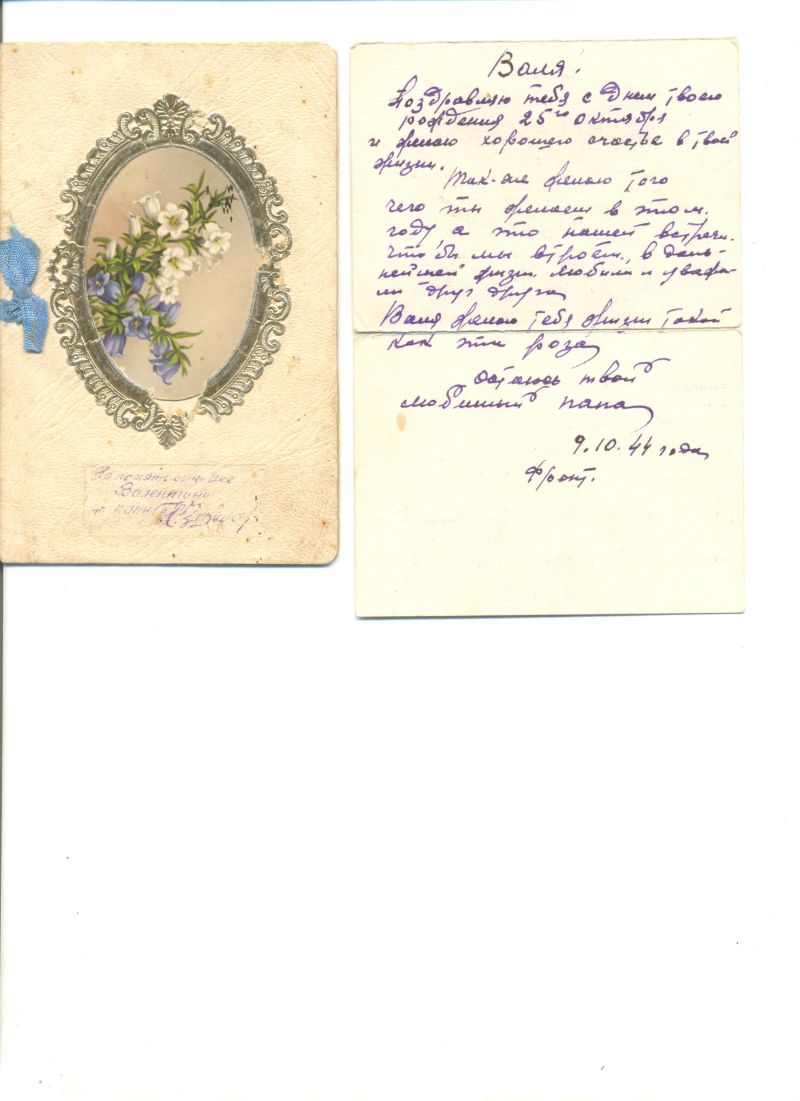 На память дочке
Валентине
от папы
Валя!
Поздравляю тебя с Днем твоего
рождения 25го октября
и желаю хорошего счастье в твоей
жизни.
Так-же желаю того
чего ты желаеш в этом
году а это нашей встречи.
что бы мы втроем, в даль-
нейшей жизни любили и уважа-
ли друг друга
Валя желаю тебе жизни такой
как эти роза
остаюсь твой
любимый папа
9.10.44 года
Фронт.